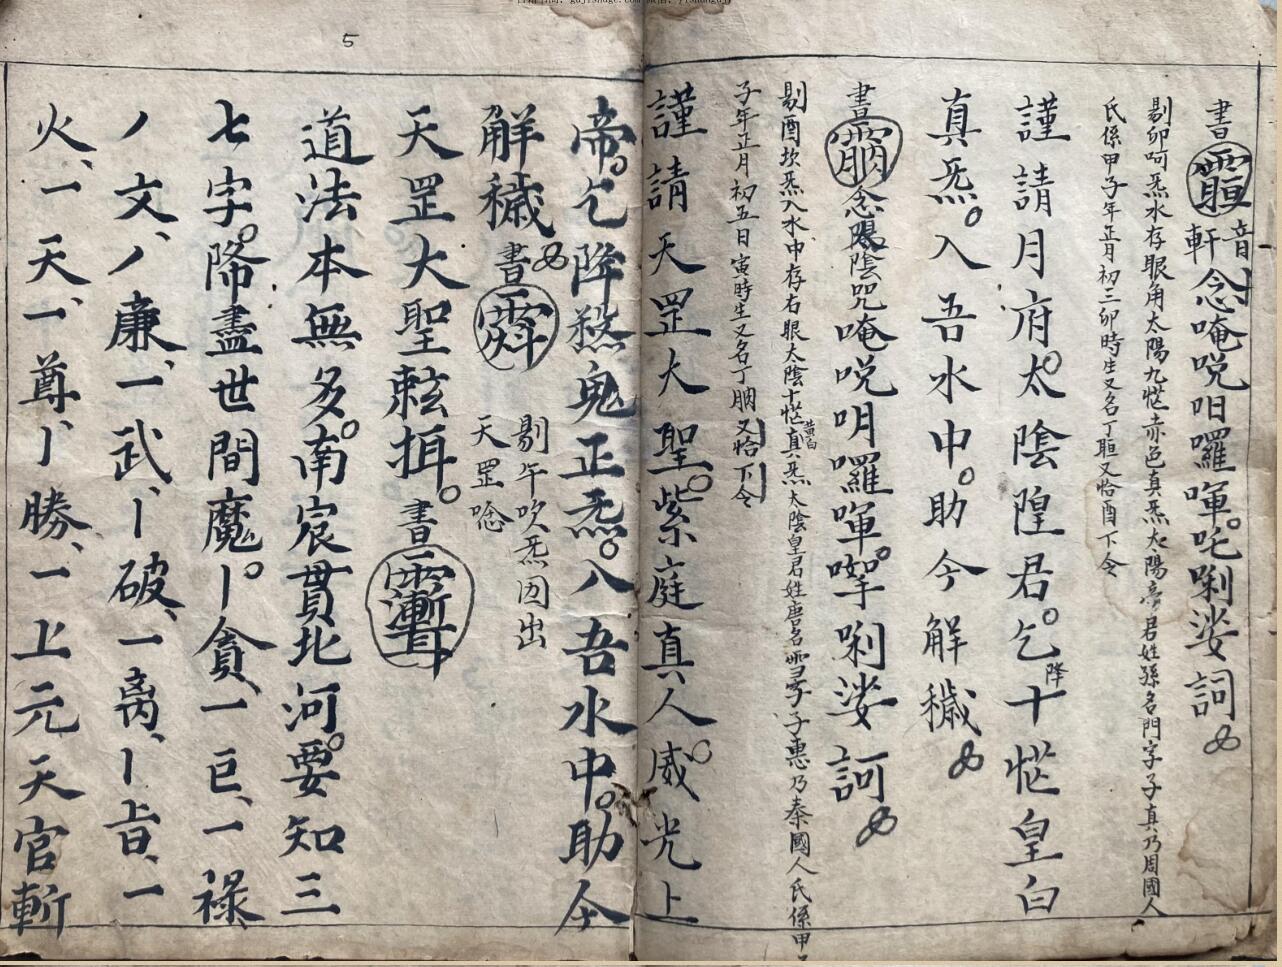 書 音軒 念唵哾㕽囉㖇。吒唎娑訶
剔卯呵炁水存眼角太陽九㤙赤色真炁太陽帝君姓孫名門字子真乃周國人
氏係甲子年正月初三卯時生又名丁䎲又恰酉下令
謹請月府。太陰隍君。乞降十㤙皇白
真炁。入吾水中。助今解穢
書 念陽陰咒唵哾明囉㖇。㘅唎娑訶
剔酉坎炁入水中存右眼太陰十㤙黃白真炁太陰皇君姓唐名雪字子惠乃秦國人氏係甲
子年正月初五日寅時生又名丁胭又恰下令
謹請天罡大聖。紫庭真人。威光上
帝。乞降殺鬼正炁。入吾水中。助今
解穢 書 剔午吹炁因出
天罡唸
天罡大聖輆揖。書
道法本無多。南宸貫北河。要知三
七字。降盡世間魔。丨貪、一巨、一祿
丿文、丿廉、一武、丨破、一离、丨旨、一
火、一天、一尊、丨勝、一上元天官斬
5